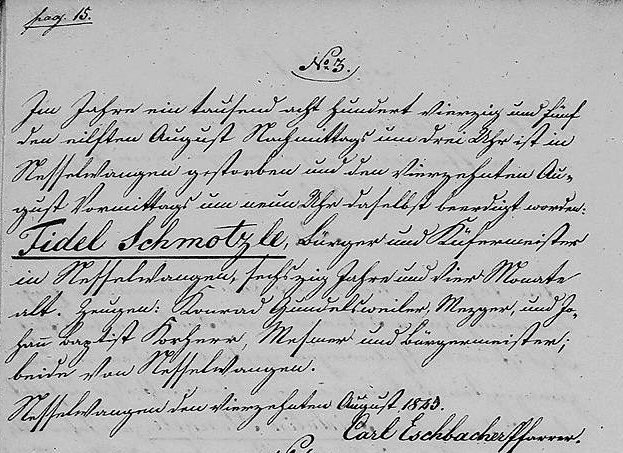 pag. 15.
No. 3.
Im Jahre ein tausend acht hundert vierzig und fünf
den eilften August Nachmittags um drei Uhr ist in
Nesselwangen gestorben und den vierzehnten Au-
gust Vormittags um neun Uhr daselbst beerdigt worden:
Fidel Schmotzle, Bürger und Küfermeister
in Nesselwangen, sechszig Jahre und vier Monate
alt. Zeugen: Konrad Gundelsweiler, Mezger, und Jo-
han Baptist Korherr, Mesmer und Bürgermeister;
beide von Nesselwangen.
Nesselwangen den vierzehnten August 1845.
Carl Eschbacher Pfarrer.